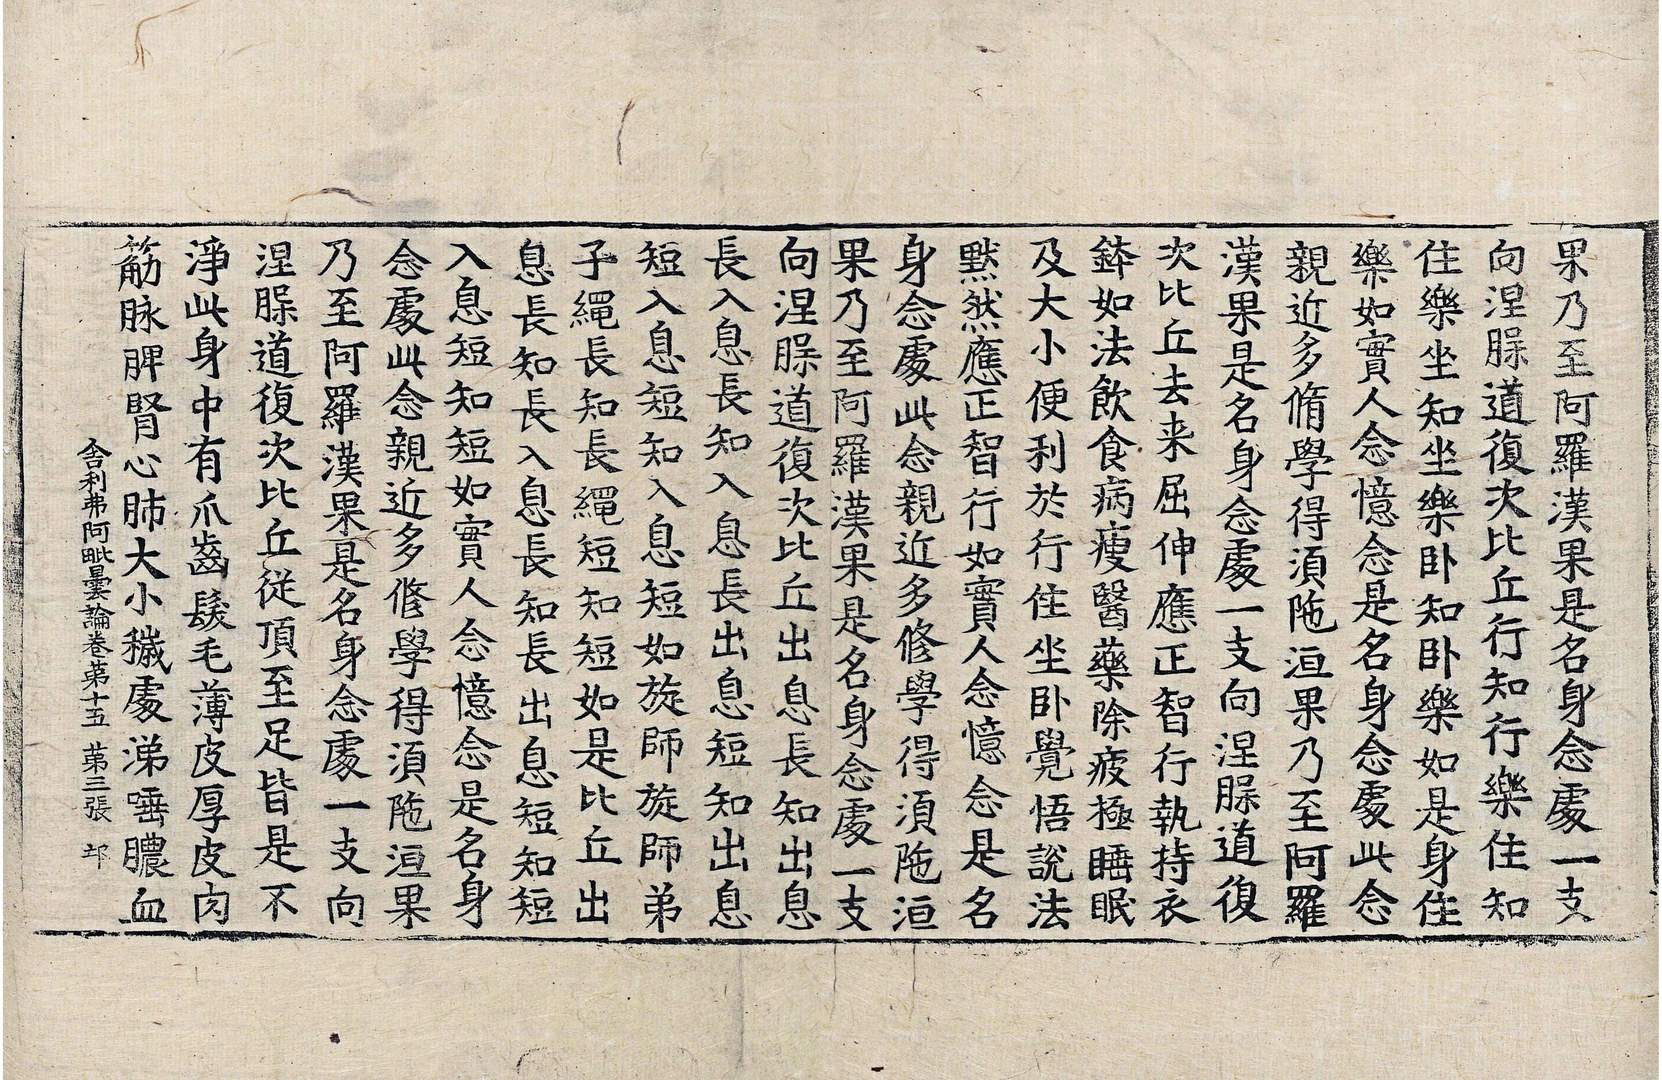 果乃至阿羅漢果是名身念處一支
向涅腺道復次比丘行知行樂住知
住樂坐知坐樂卧知卧樂如是身住
樂如實人念憶念是名身念處此念
親近多脩學得須陁洹果乃至阿羅
漢果是名身念處一支向涅腺道復
次比丘去来屈伸應正智行執持衣
鉢如法飲食病瘦醫藥除疲極睡眠
及大小便利於行住坐卧覺悟說法
黙然應正智行如實人念憶念是名
身念處此念親近多修學得須陁洹
果乃至阿羅漢果是名身念處一支
向涅腺道復次比丘出息長知出息
長入息長知入息長出息短知出息
短入息短知入息短如旋師旋師弟
子繩長知長繩短知短如是比丘出
息長知長入息長知長出息短知短
入息短知短如實人念憶念是名身
念處此念親近多修學得須陁洹果
乃至阿羅漢果是名身念處一支向
涅腺道復次比丘從頂至足皆是不
淨此身中有爪齒髮毛薄皮厚皮肉
筋脉脾腎心肺大小穢處涕唾膿血
舍利弗阿毗曇論卷第十五 第三張